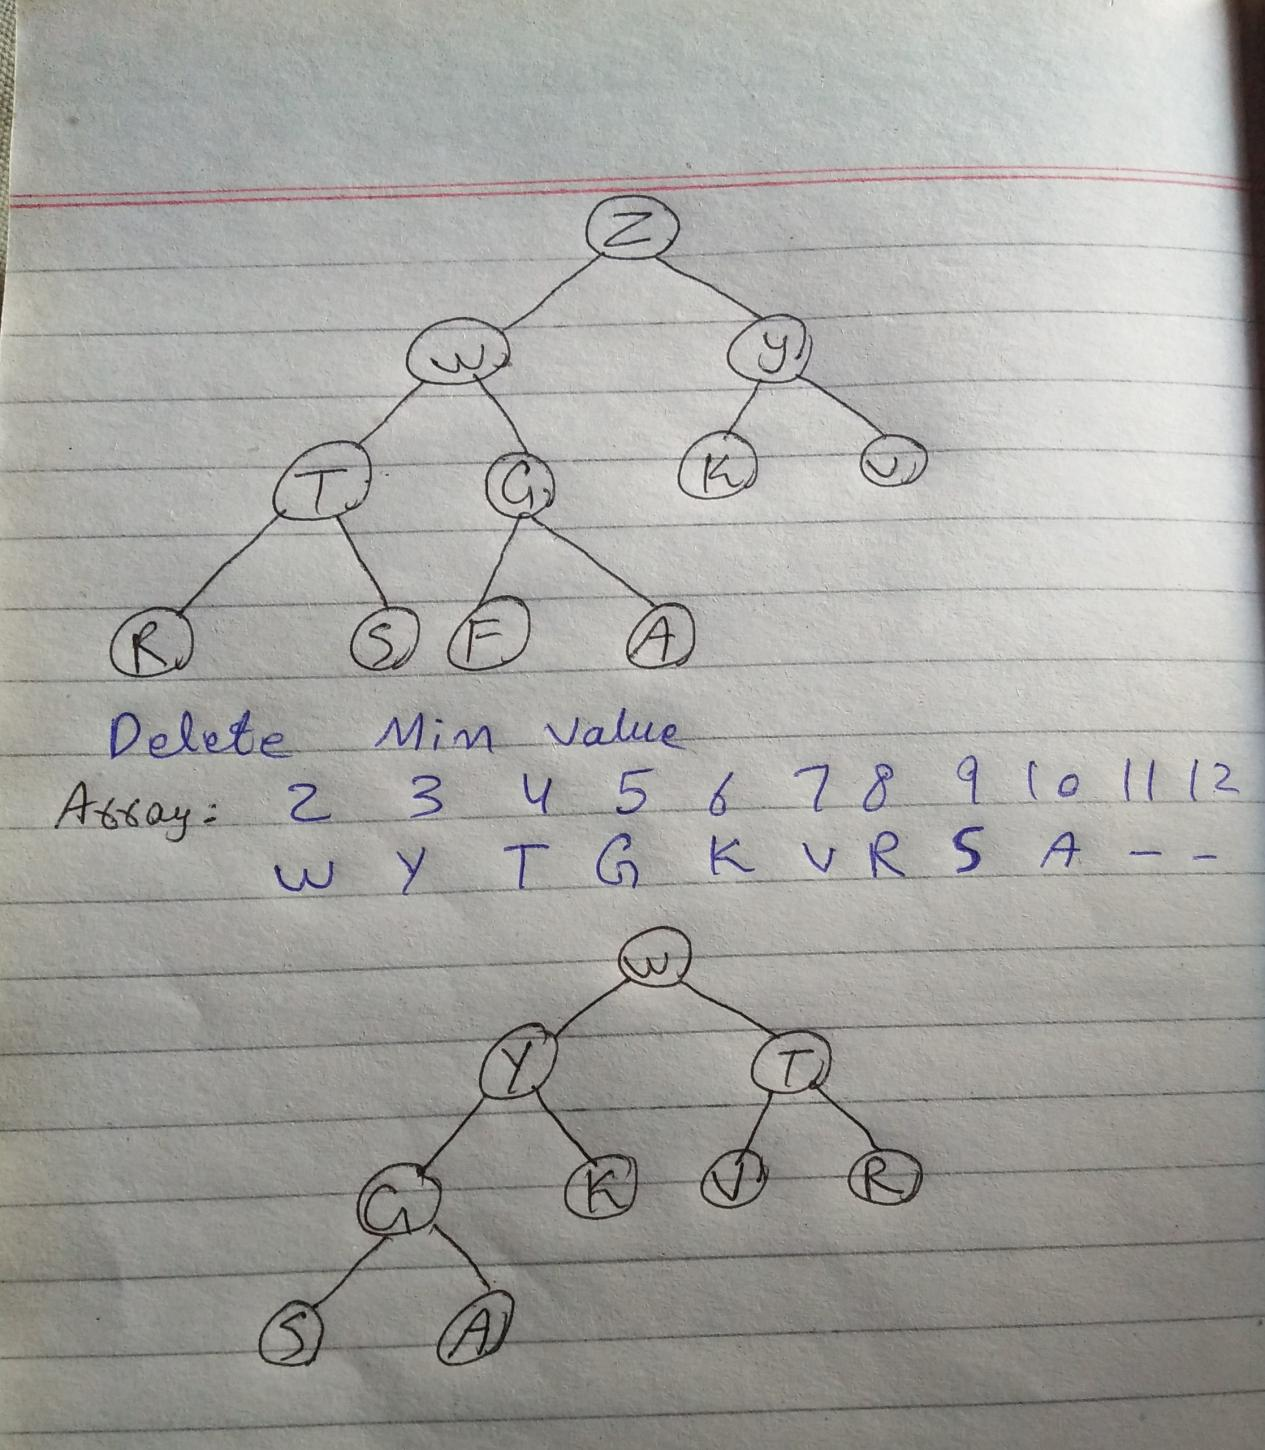 Z
W Y
T G K V
R S F A
Delete Min Value
Array: 2 3 4 5 6 7 8 9 10 11 12
W Y T G K V R S A - -
W
Y T
G K V R
S A